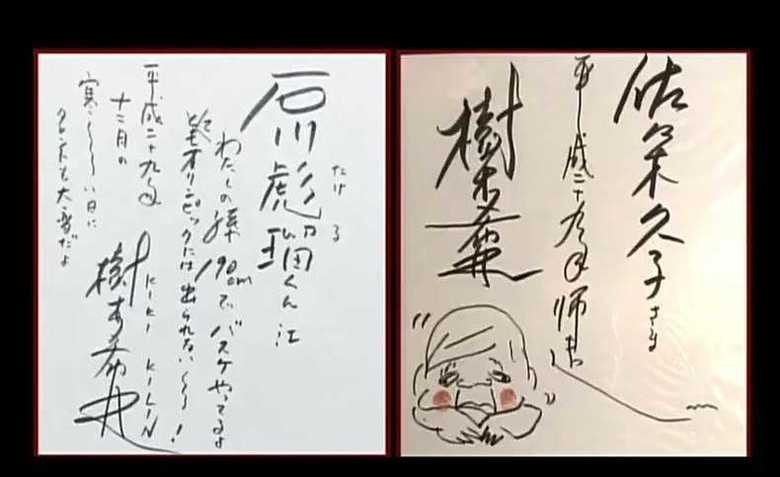 石川彪瑠くん江
たける
わたしの孫190cmでバスケやってるよ
オリンピックには出られない〜〜!
平成二十九年
十二月の
寒い〜〜い日に
タレントも大変だよ
樹木希林
KIKI KILIN
佐々木久子さま
平成二十九年師走
樹木希林